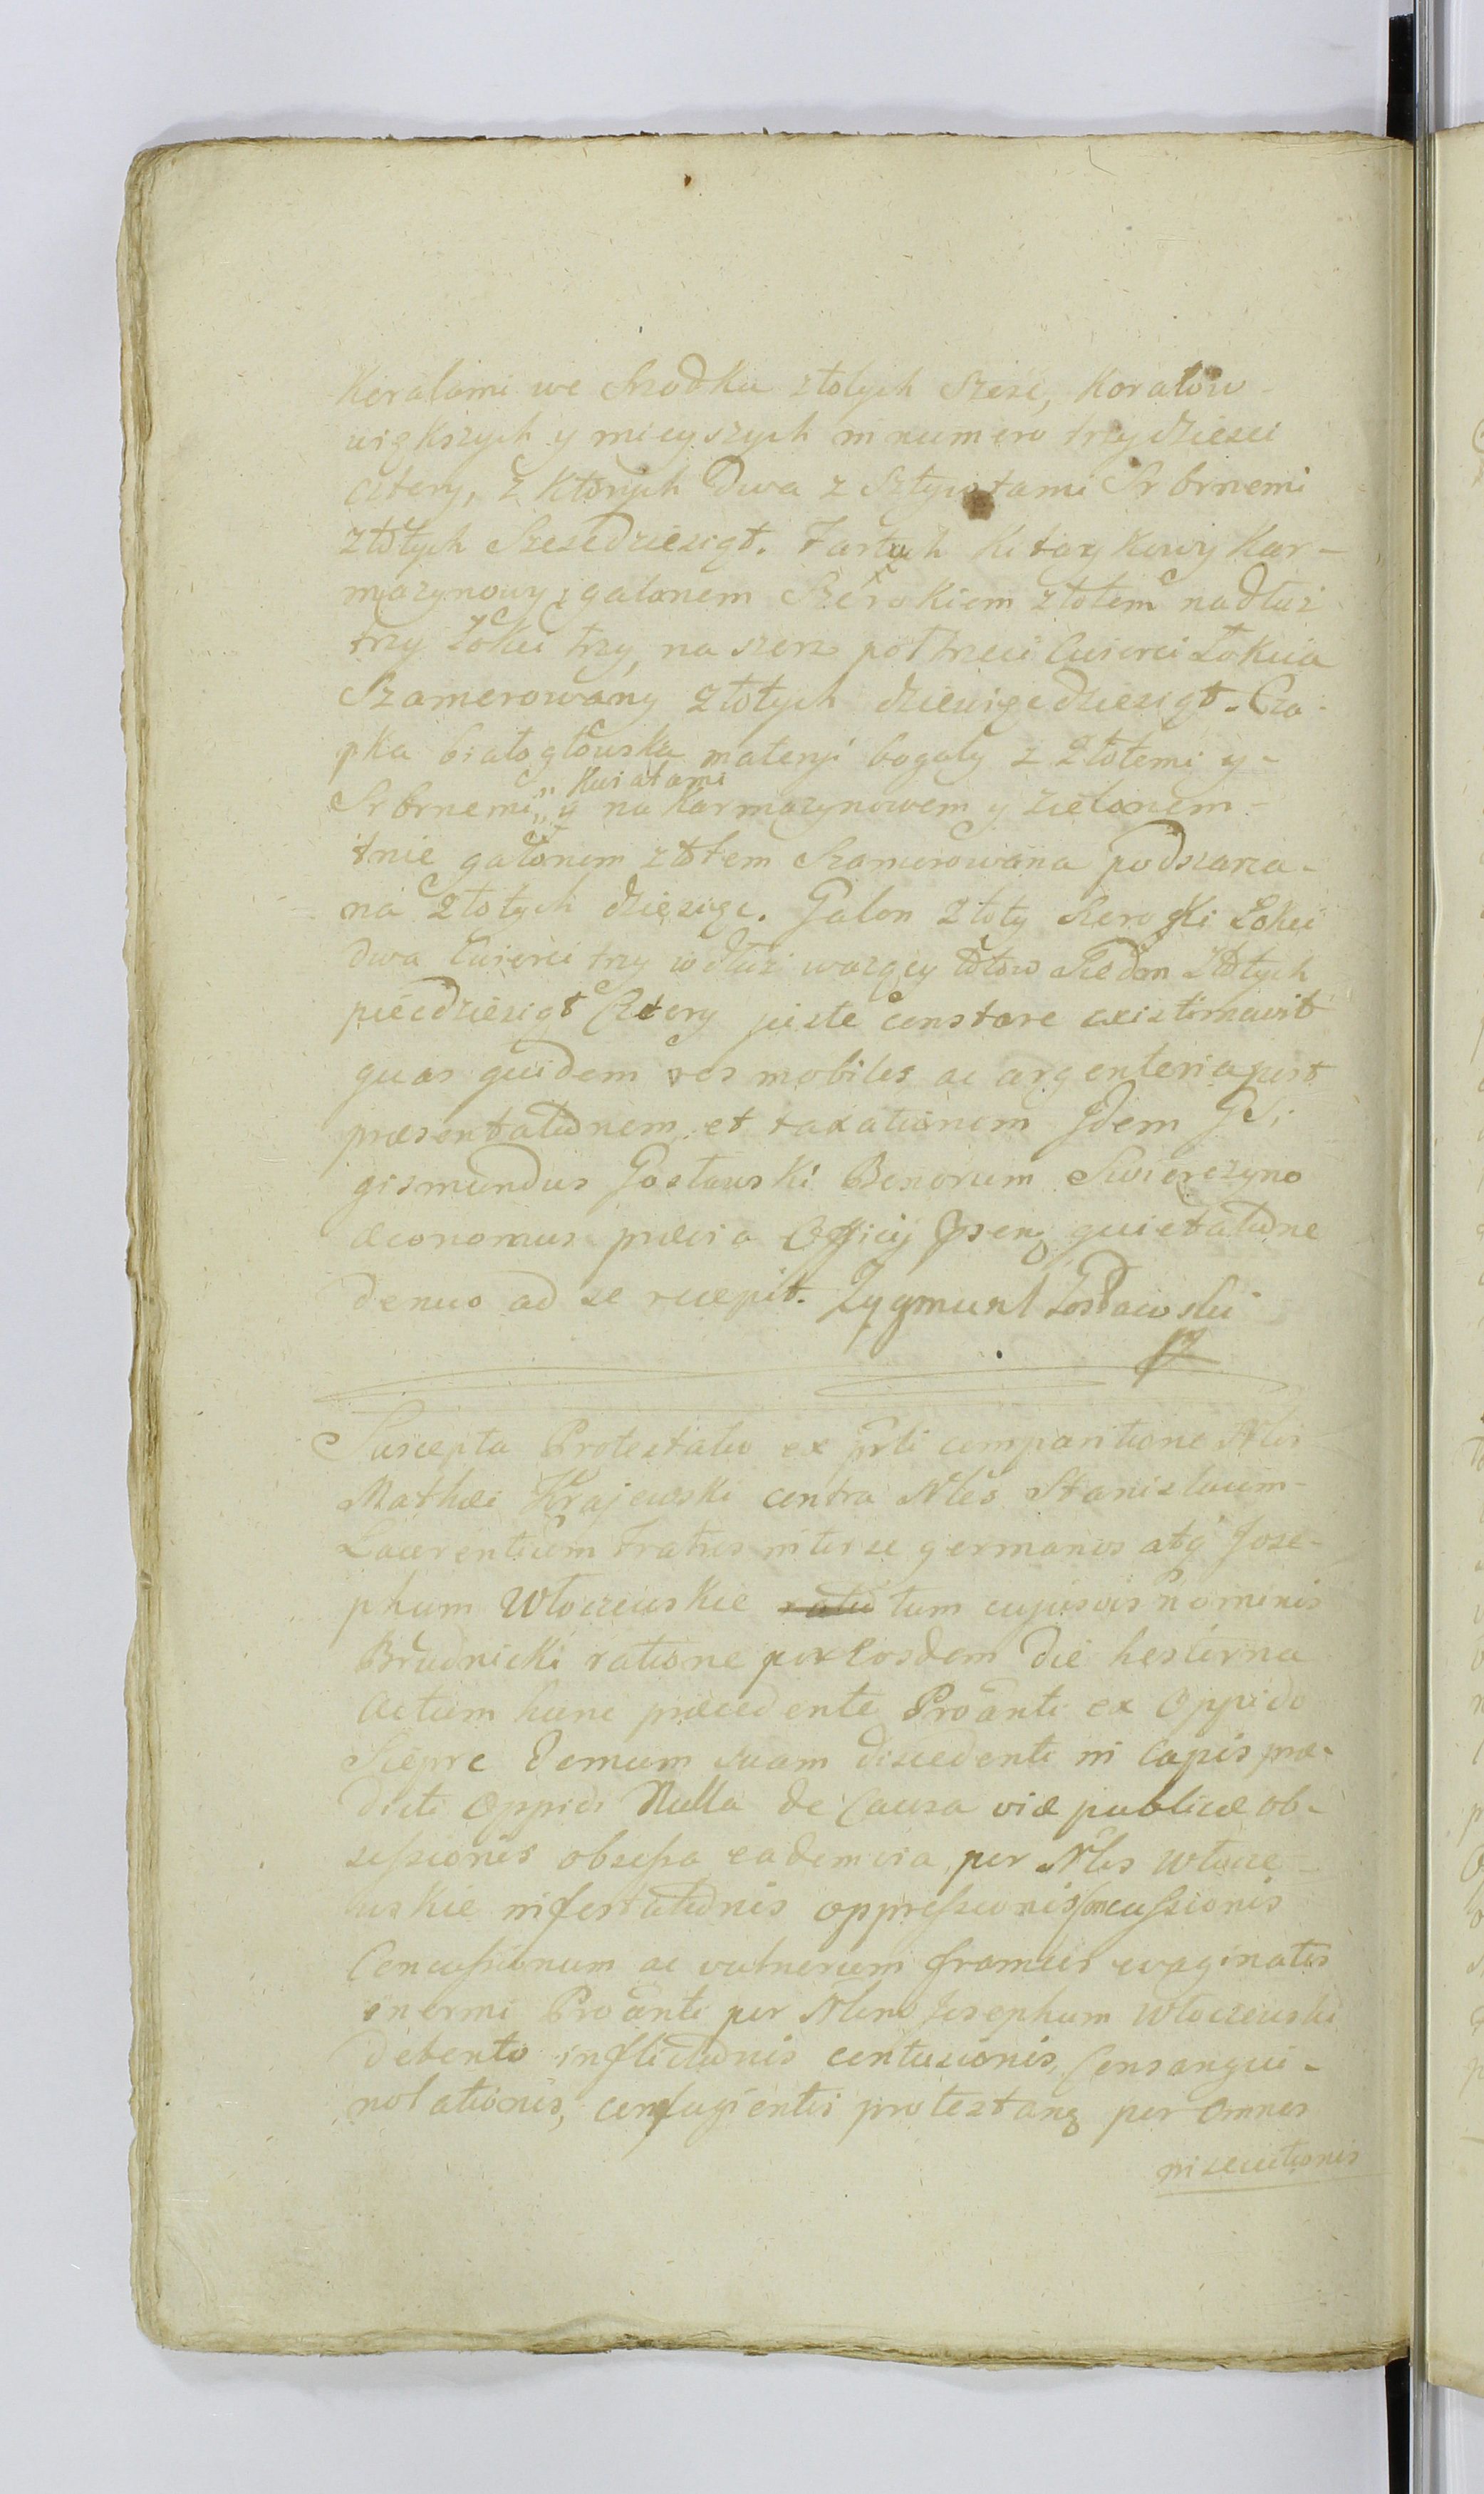 Koralami we Srzodku złotych Szesc, Koralow
większych y mieyszych in numero trzydziesci
cztery, z których Dwa z Sztyftami Srbrnemi
złotych Szescdziesiąt. Fartuch Kitaykowy Kar-
mazynowy z galonem Szerokiem złotem nadłuż
trzy Łokci trzy, na szerz poł trzeci Cwierci Łokcia
Szamerowany złotych dziewięcdziesiąt. Cza-
pka białogłowska materyi bogaty z złotemi y-
Srbrnemi „ Kwiatami „ y na Karmazynowem y zielonem-
dnie galonem złotem Szamerowana podszarza-
na złotych dziesięc. Galon złoty Szeroki Łokci
dwa Cwierci trzy wdłuż ważący łotow Siedm złotych
piecdziesiąt Cztery juste constare existimavit
quas quidem res mobiles ac argenteria post
præsentationem et taxationem Idem G. Si-
gismundus Gostawski Bonorum Swierczyno
œconomus prævia Officij Psentz quietatione
denuo ad se recepit. Zygmunt Gostawski
Suscepta Protestatio ex psti comparitione Nlis
Mathæi Krajewski contra Nles Stanislaum-
Laurentium Fratres inter se germanos atq Jose-
phum Włoczewskie tum cujusvis nominis
Brudnicki ratione per Eosdem die hesterna
Actum hunc præcedente Proanti ex Oppido
Sieprc domum suam discedenti in Capis præ-
dicti Oppidi Nulla de Causa viæ publicæ ob-
sessionis obsessa eademvia per Nles Włocze-
wskie infestationis oppressionis concussionis
Concussionum ac vulnerum frameis evaginatis
inermi Proanti per Nlem Josephum Włoczewski
detento inflictionis contusionis, Consangui-
nolationis, confugientis protestang per omnes
insecutionis